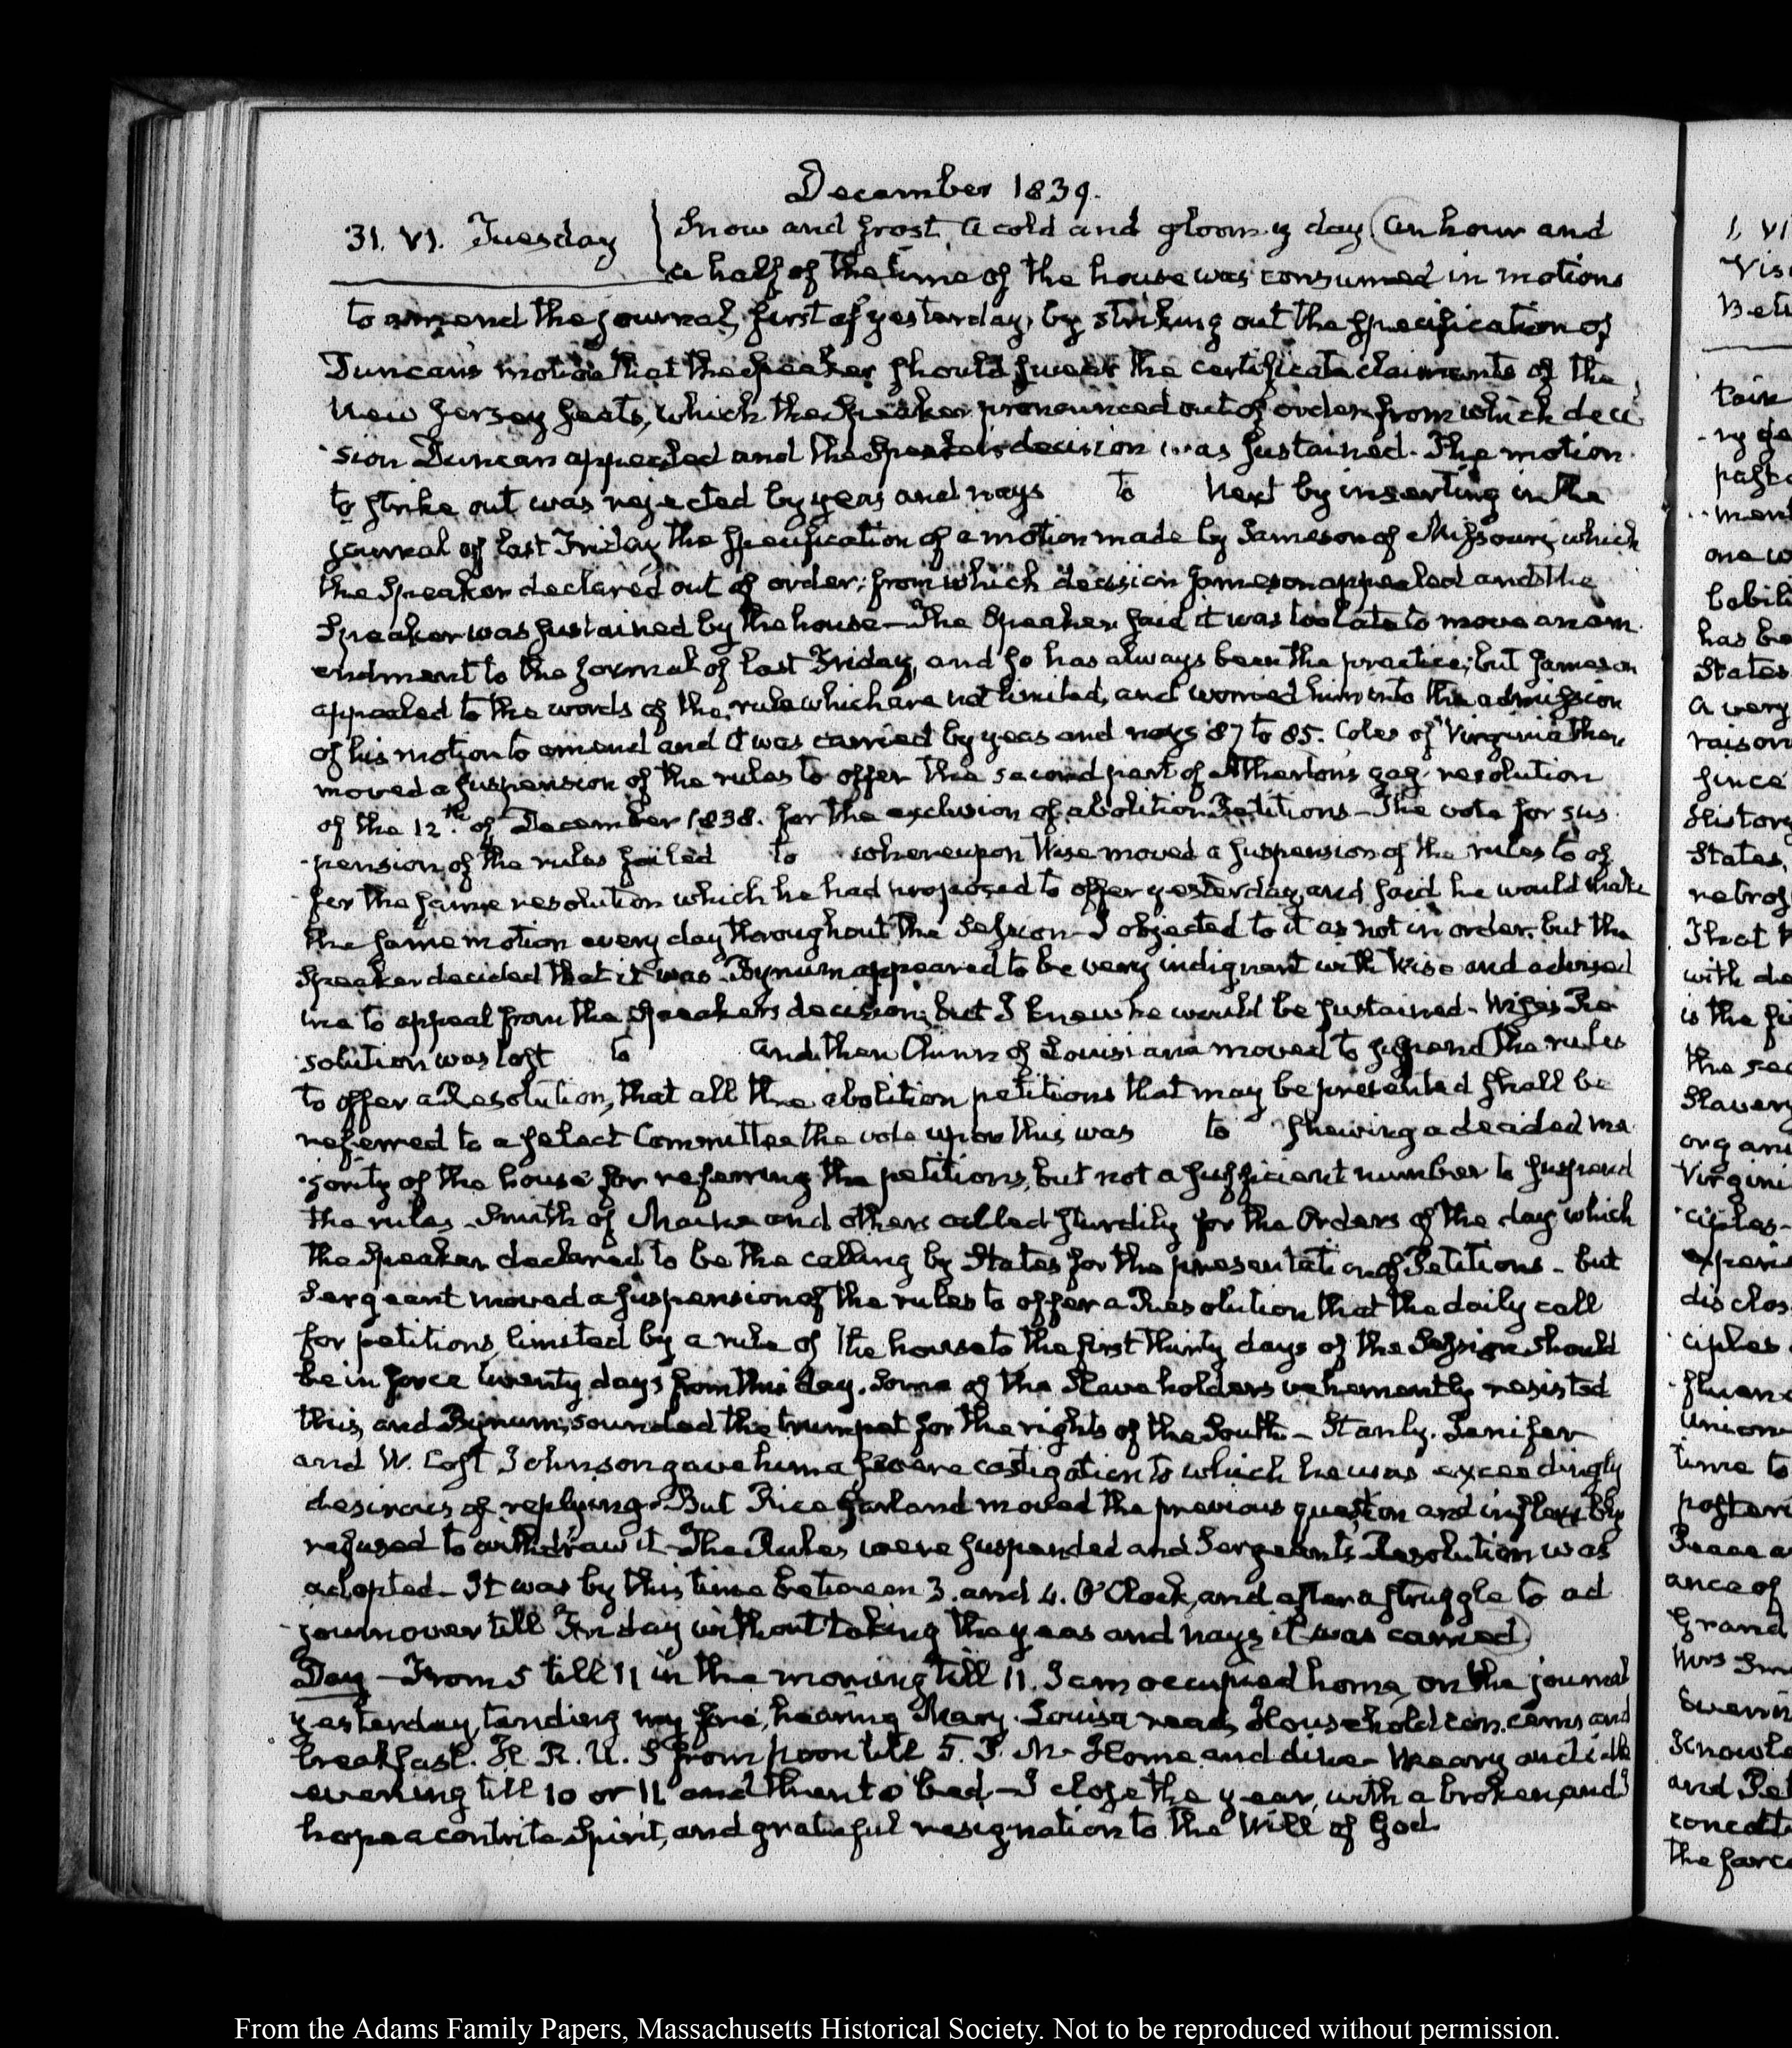 December 1839.
31. VI. Tuesday
Snow and frost. A cold and gloomy day (An hour and
a half of the time of the house was consumed in motions
to amend the journal, first of yesterday, by striking out the specification of
Duncan's motion that the Speaker should swear the certificate claimants of the
New Jersey seats, which the Speaker pronounced out of order, from which deci
sion Duncan appealed and the Speaker's decision was sustained. The motion
to strike out was rejected by yeas and nays to Next by inserting in the
journal of last Friday the specification of a motion made by Jameson of Missouri, which
the Speaker declared out of order; from which decision Jameson appealed and the
Speaker was sustained by the house - The Speaker said it was too late to move an am
endment to the journal of last Friday, and so has always been the practice; but Jameson
appealed to the words of the rule which are not limited, and worried him into the admission
of his motion to amend and it was carried by yeas and nays 87 to 85. Coles of Virginia then
moved a suspension of the rules to offer the second part of Atherton's gag-resolution
of the 12th. of December 1838. for the exclusion of abolition Petitions - The vote for sus
pension of the rules failed to whereupon Wise moved a suspension of the rules to of
fer the same resolution which he had proposed to offer yesterday, and said he would make
the same motion every day throughout the Session - I objected to it as not in order, but the
Speaker decided that it was. Bynum appeared to be very indignant with Wise and advised
me to appeal from the Speaker's decision; but I knew he would be sustained - Wise's Re
solution was lost to and then Chinn of Louisiana moved to suspend the rules
to offer a Resolution, that all the abolition petitions that may be presented shall be
referred to a select Committee the vote upon this was to shewing a decided ma
jority of the house for referring the petitions, but not a sufficient number to suspend
the rules - Smith of Maine and others called sturdily for the Orders of the day which
the Speaker declared to be the calling by States for the presentation of Petitions - but
Sergeant moved a suspension of the rules to offer a Resolution that the daily call
for petitions, limited by a rule of the house to the first thirty days of the Session should
be in force twenty days from this day. Some of the Slave holders vehemently resisted
this, and Bynum, sounded the trumpet for the rights of the South - Stanly. Jenifer
and W. Cost Johnson gave him a severe castigation to which he was exceedingly
desirous of replying. But Rice Garland moved the previous question and inflexibly
refused to withdraw it - The Rules were suspended and Sergeant's Resolution was
adopted - It was by this time between 3. and 4. O'Clock, and after a struggle to ad
journ over till Friday without taking the yeas and nays it was carried)
Day - From 5 till 11 in the morning till 11. I am occupied home, on the journal
yesterday, tending my fire, hearing Mary Louisa read, Household concerns and
breakfast. H. R. U. S from noon till 5. P. M - Home and dine - Weary and idle
evening till 10 or 11 and then to bed - I close the year, with a broken, and I
hope a contrite Spirit, and grateful resignation to the Will of God
1, VI
Vis
Bet
tain
ry ge
past
ment
one w
babil
has be
States
a very
raison
since
History
States,
retros
That
with de
is the
the sec
Slavery
organi
Virgini
ciples
experi
disclos
ciples
fluen
Union
time to
poster
Peace a
ance of
Grand
Mrs Sm
Evenin
Knowle
and Pet
The farc
From the Adams Family Papers, Massachusetts Historical Society. Not to be reproduced without permission.